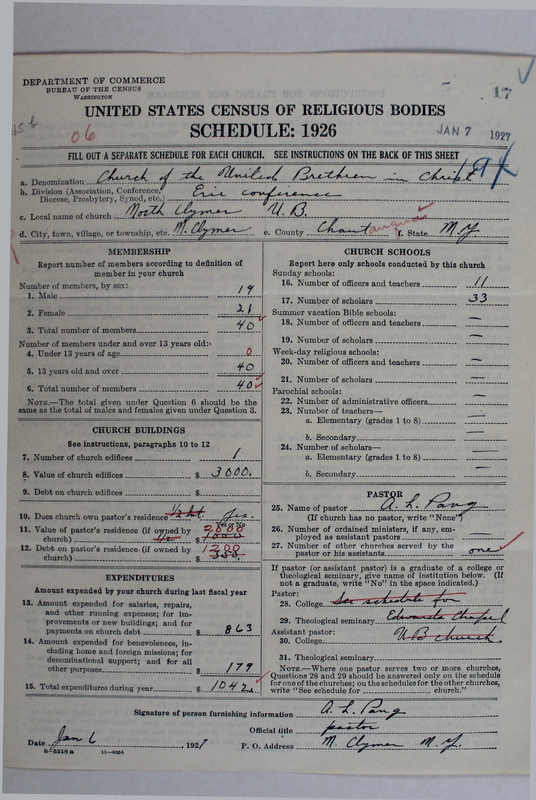 DEPARTMENT OF COMMERCE
BUREAU OF THE CENSUS
WASHINGTON
17
UNITED STATES CENSUS OF RELIGIOUS BODIES
SCHEDULE: 1926
06
JAN 7 1927
FILL OUT A SEPARATE SCHEDULE FOR EACH CHURCH. SEE INSTRUCTIONS ON THE BACK OF THIS SHEET
a. Denomination Church of the United Brethren in Christ
b. Division (Association, Conference, Diocese, Presbytery, Synod, etc.) Erie conference
c. Local name of church North Clymer U. B.
d. City, town, village, or township, etc. N. Clymer e. County Chautauqua f. State N.Y.
MEMBERSHIP
Report number of members according to definition of
member in your church
Number of members, by sex:
1. Male 19
2. Female 21
3. Total number of members 40
Number of members under and over 13 years old:-
4. Under 13 years of age 0
5. 13 years old and over 40
6. Total number of members 40
NOTE.—The total given under Question 6 should be the
same as the total of males and females given under Question 3.
CHURCH BUILDINGS
See instructions, paragraphs 10 to 12
7. Number of church edifices 1
8. Value of church edifices $ 3000.
9. Debt on church edifices $
10. Does church own pastor's residence 1/2 int yes.
11. Value of pastor's residence (if owned by
church) 1/2 $ 1000 2000
12. Debt on pastor's residence (if owned by
church) $ 1200
EXPENDITURES
Amount expended by your church during last fiscal year
13. Amount expended for salaries, repairs,
and other running expenses; for im-
provements or new buildings; and for
payments on church debt $ 863
14. Amount expended for benevolences, in-
cluding home and foreign missions; for
denominational support; and for all
other purposes $ 179
15. Total expenditures during year $ 1042
CHURCH SCHOOLS
Report here only schools conducted by this church
Sunday schools:
16. Number of officers and teachers 11
17. Number of scholars 33
Summer vacation Bible schools:
18. Number of officers and teachers —
19. Number of scholars —
Week-day religious schools:
20. Number of officers and teachers —
21. Number of scholars —
Parochial schools:
22. Number of administrative officers —
23. Number of teachers—
a. Elementary (grades 1 to 8) —
b. Secondary —
24. Number of scholars—
a. Elementary (grades 1 to 8) —
b. Secondary —
PASTOR
25. Name of pastor A. L. Pang
(If church has no pastor, write "None")
26. Number of ordained ministers, if any, em-
ployed as assistant pastors —
27. Number of other churches served by the
pastor or his assistants one
If pastor (or assistant pastor) is a graduate of a college or
theological seminary, give name of institution below. (If
not a graduate, write "No" in the space indicated.)
Pastor:
28. College See schedule for
29. Theological seminary Edwards Chapel
Assistant pastor:
30. College U B church.
31. Theological seminary
NOTE.—Where one pastor serves two or more churches,
Questions 28 and 29 should be answered only on the schedule
for one of the churches; on the schedules for the other churches,
write "See schedule for church."
Signature of person furnishing information A. L. Pang
Official title pastor
Date Jan 6, 1927 P. O. Address N. Clymer N.Y.
8-5518 a 11-9054